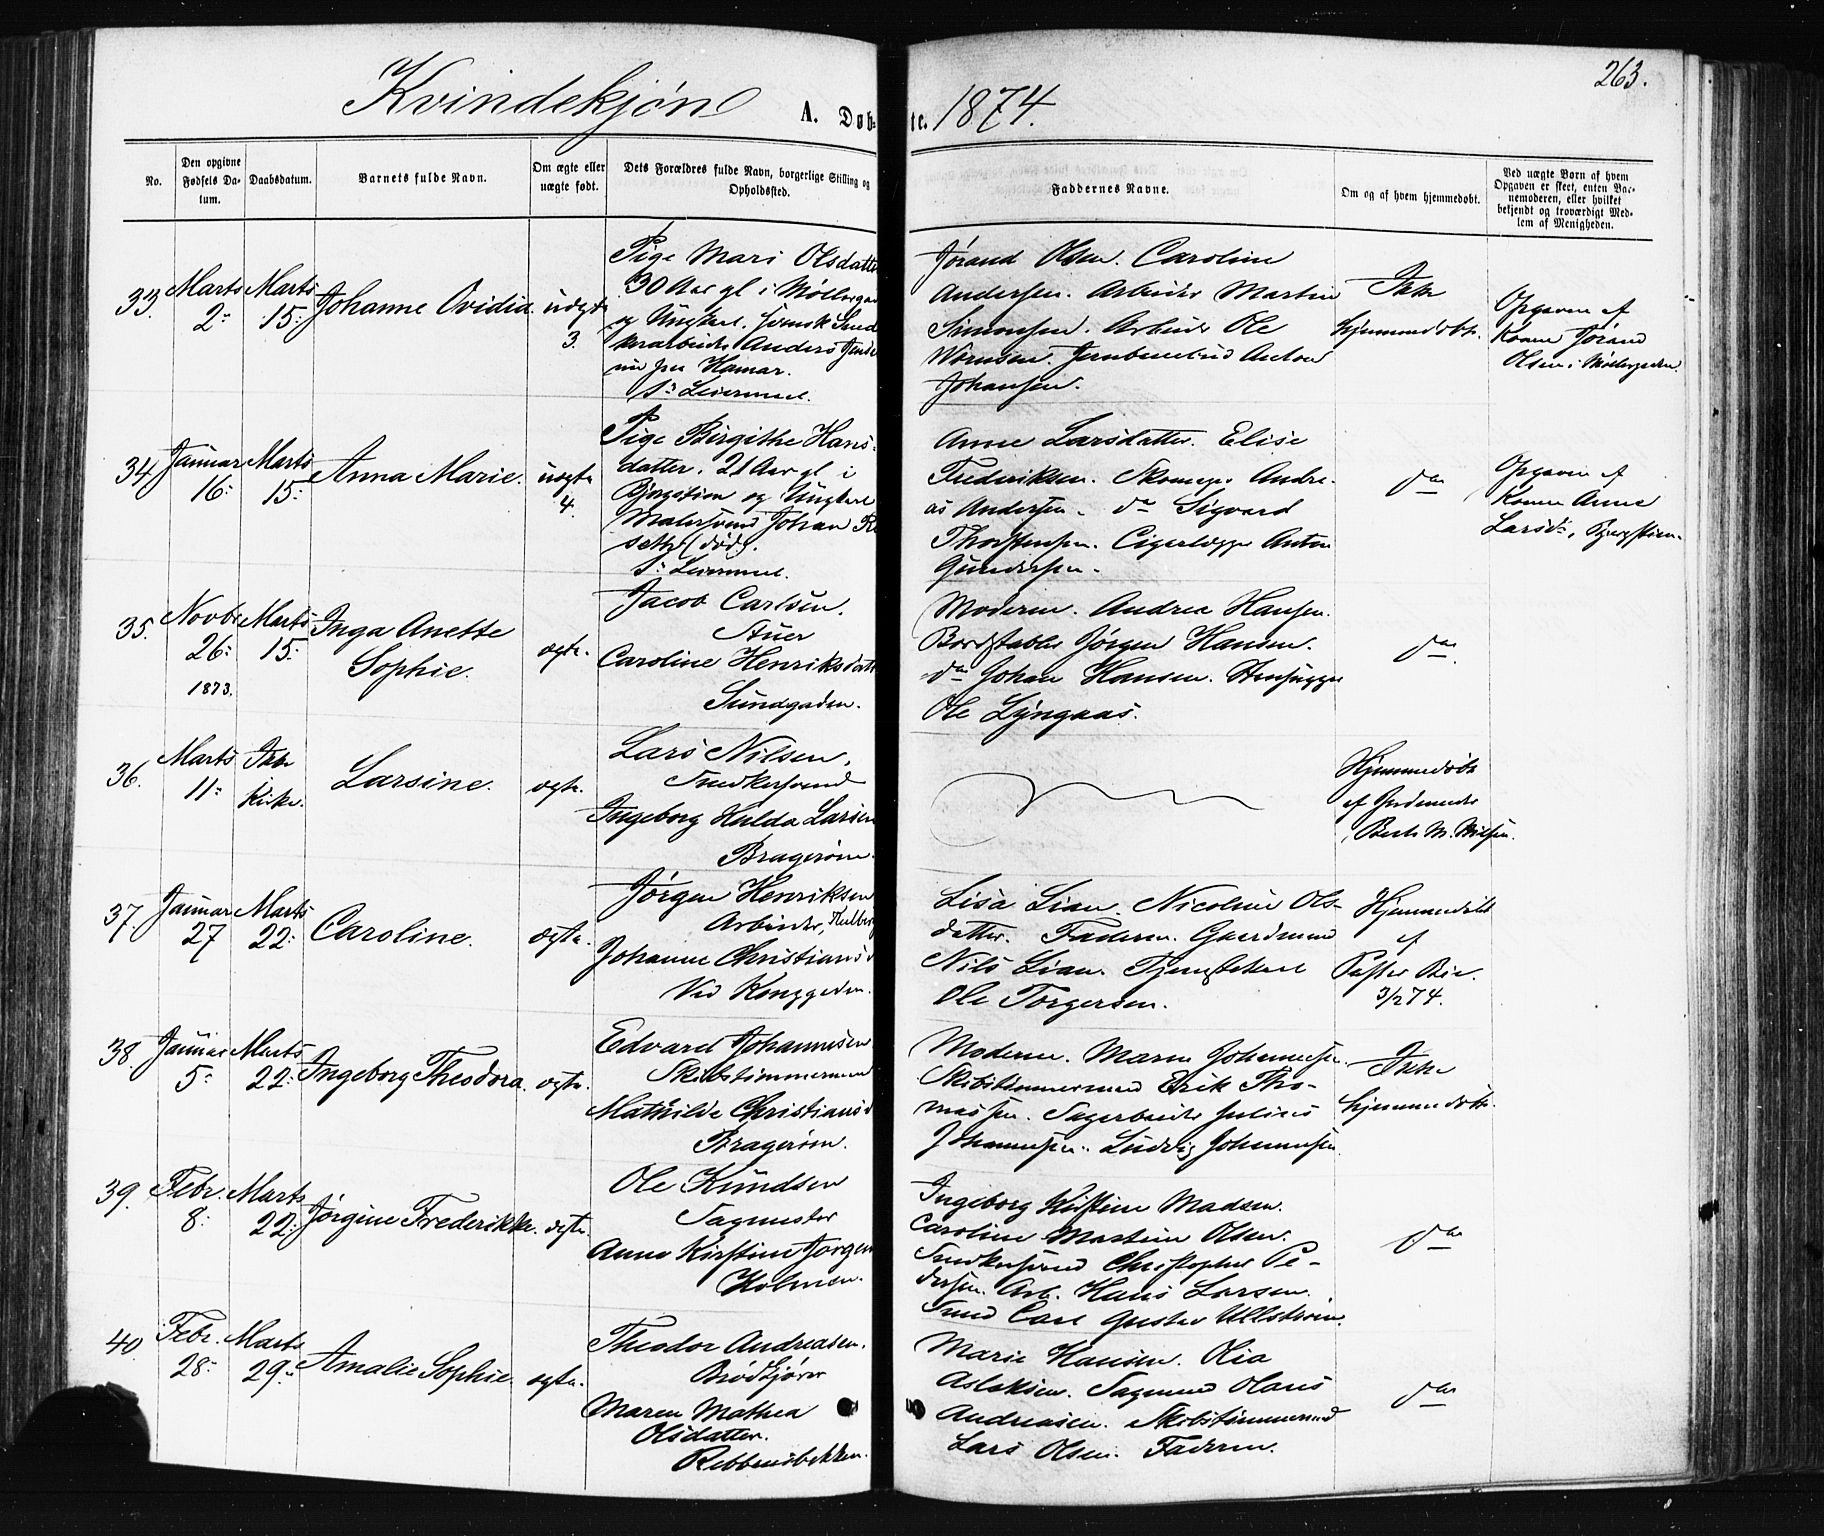 263.
Kvindekjøn A. Døb-
te. 1874.
No.
Den opgivne
Fødsels Da-
tum.
Daabsdatum.
Barnets fulde Navn.
Om ægte eller
uægte født.
Dets Forældres fulde Navn, borgerlige Stilling og
Opholdssted.
Faddernes Navne.
Om og af hvem hjemmedøbt.
Ved uægte Børn af hvem
Opgaven er skeet, enten Bar-
nemoderen, eller hvilket
bekjendt og troværdigt Med-
lem af Menigheden.
33.
Marts
2:
Marts
15:
Johanne Ovidia.
uægte
3.
Pige Mari Olsdatter
30 Aar gl i Møllergaden
og Ungkarl, svensk
Anders
fra Hamar.
1ste Leiermaal.
Jørand Olsen. Caroline
Andersen. Arbeider Martin
Simonsen. Arbeider Ole
Anton
Johansen.
Ikke
hjemmedøbt.
Opgaven af
Konen Jørand
Olsen i Møllergaden.
34.
Januar
16:
Marts
15:
Anna Marie.
uægte
4.
Pige Birgithe Hans-
datter, 21 Aar gl i
Bjergstien og Ungkarl
Malersvend Johan
(død).
1ste Leiermaal.
Anne Larsdatter. Elise
Frederiksen. Skomager Andre-
as Andersen. do Sigvard
Thorstensen. Cigarlægger Anton
Gundersen.
do
Opgaven af
Konen Anne
Larsd., Bjergstien.
35.
Novbr
26:
1873.
Marts
15:
Inga Anette
Sophie.
ægte.
Jacob Carlsen.
Stuer
Caroline Henriksdatter
Sundgaden.
Moderen. Andrea Hansen.
Bordstabler Jørgen Hansen.
do Johan Hansen.
Ole Lyngaas.
do.
36.
Marts
11:
Ikke
Kirke.
Larsine.
ægte.
Lars Nilsen,
Snedkersvend
Ingeborg Hulda Larsen
Bragerøen.
Hjemmedøbt
af Jordemoder
Berth M. Nilsen.
37.
Januar
27
Marts
22:
Caroline.
ægte.
Jørgen Henriksen
Arbeider,
Johanne Christiansd
Ved Kongeaden.
Lisa Lian. Nicoline Ols-
datter. Faderen. Gaardmand
Nils Lian. Tjenestekarl
Ole Torgersen.
Hjemmedøbt
af
Pastor Bie.
3/2 74.
38.
Januar
5:
Marts
22:
Ingeborg Theodora.
ægte.
Edvard Johannesen
Skibstømmermand
Mathilde Christiansd
Bragerøen.
Moderen. Maren Johannesen.
Skibstømmermand Erik Tho-
massen. Sagarbeider Julius
Johannesen. Ludvig Johannesen.
Ikke
hjemmedøbt.
39.
Febr.
8:
Marts
22:
Jørgine Frederikke.
ægte.
Ole Knudsen
Sagmester
Anne Kirstine Jorgens
Holmen.
Ingeborg Kirstine Madsen.
Caroline Martine Olsen.
Snedkersvend Christopher Pe-
dersen. Arb. Hans Larsen.
Smed Carl Gustav Ullstrøm.
do
40.
Febr.
28:
Marts
29:
Amalie Sophie.
ægte.
Theodor Andreasen.
Brødkjører
Maren Mathea
Olsdatter.
Rebbansbakken.
Marie Hansen. Olia
Aslaksen. Sagmand Hans
Andreasen. Skibstømmermand
Lars Olsen. Faderen.
do